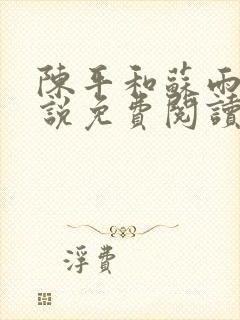 陳平和蘇雨
說免費閱讀
浮費